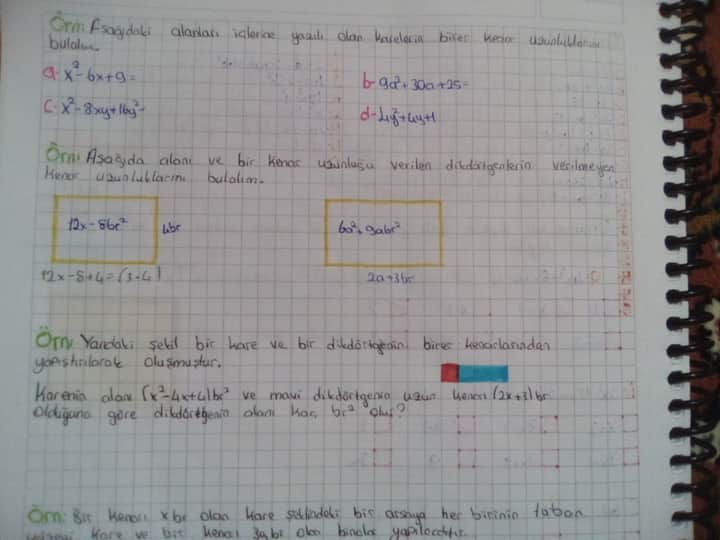 Örn: Aşağıdaki alanları içlerine yazılı olan karelerin birer kenar uzunluklarını
bulalım.
a- x²-6x+9=
b- 9a²+30a+25=
c- x²-8xy+16y²=
d- 4y²+4y+1
Örn: Aşağıda alanı ve bir kenar uzunluğu verilen dikdörtgenlerin verilmeyen
kenar uzunluklarını bulalım.
12x-8br²
4br
6a²+9abr²
12x-8÷4=(3-4)
2a+3br
Örn: Yandaki şekil bir kare ve bir dikdörtgenin birer kenarlarından
yapıştırılarak oluşmuştur.
Karenin alanı (x²-4x+4)br² ve mavi dikdörtgenin uzun kenarı (2x+3)br
olduğuna göre dikdörtgenin alanı kaç br² olur?
Örn: Bir kenarı xbr olan kare şeklindeki bir arsaya her birinin taban
kare ve bir kenarı 3ybr olan binalar yapılacaktır.